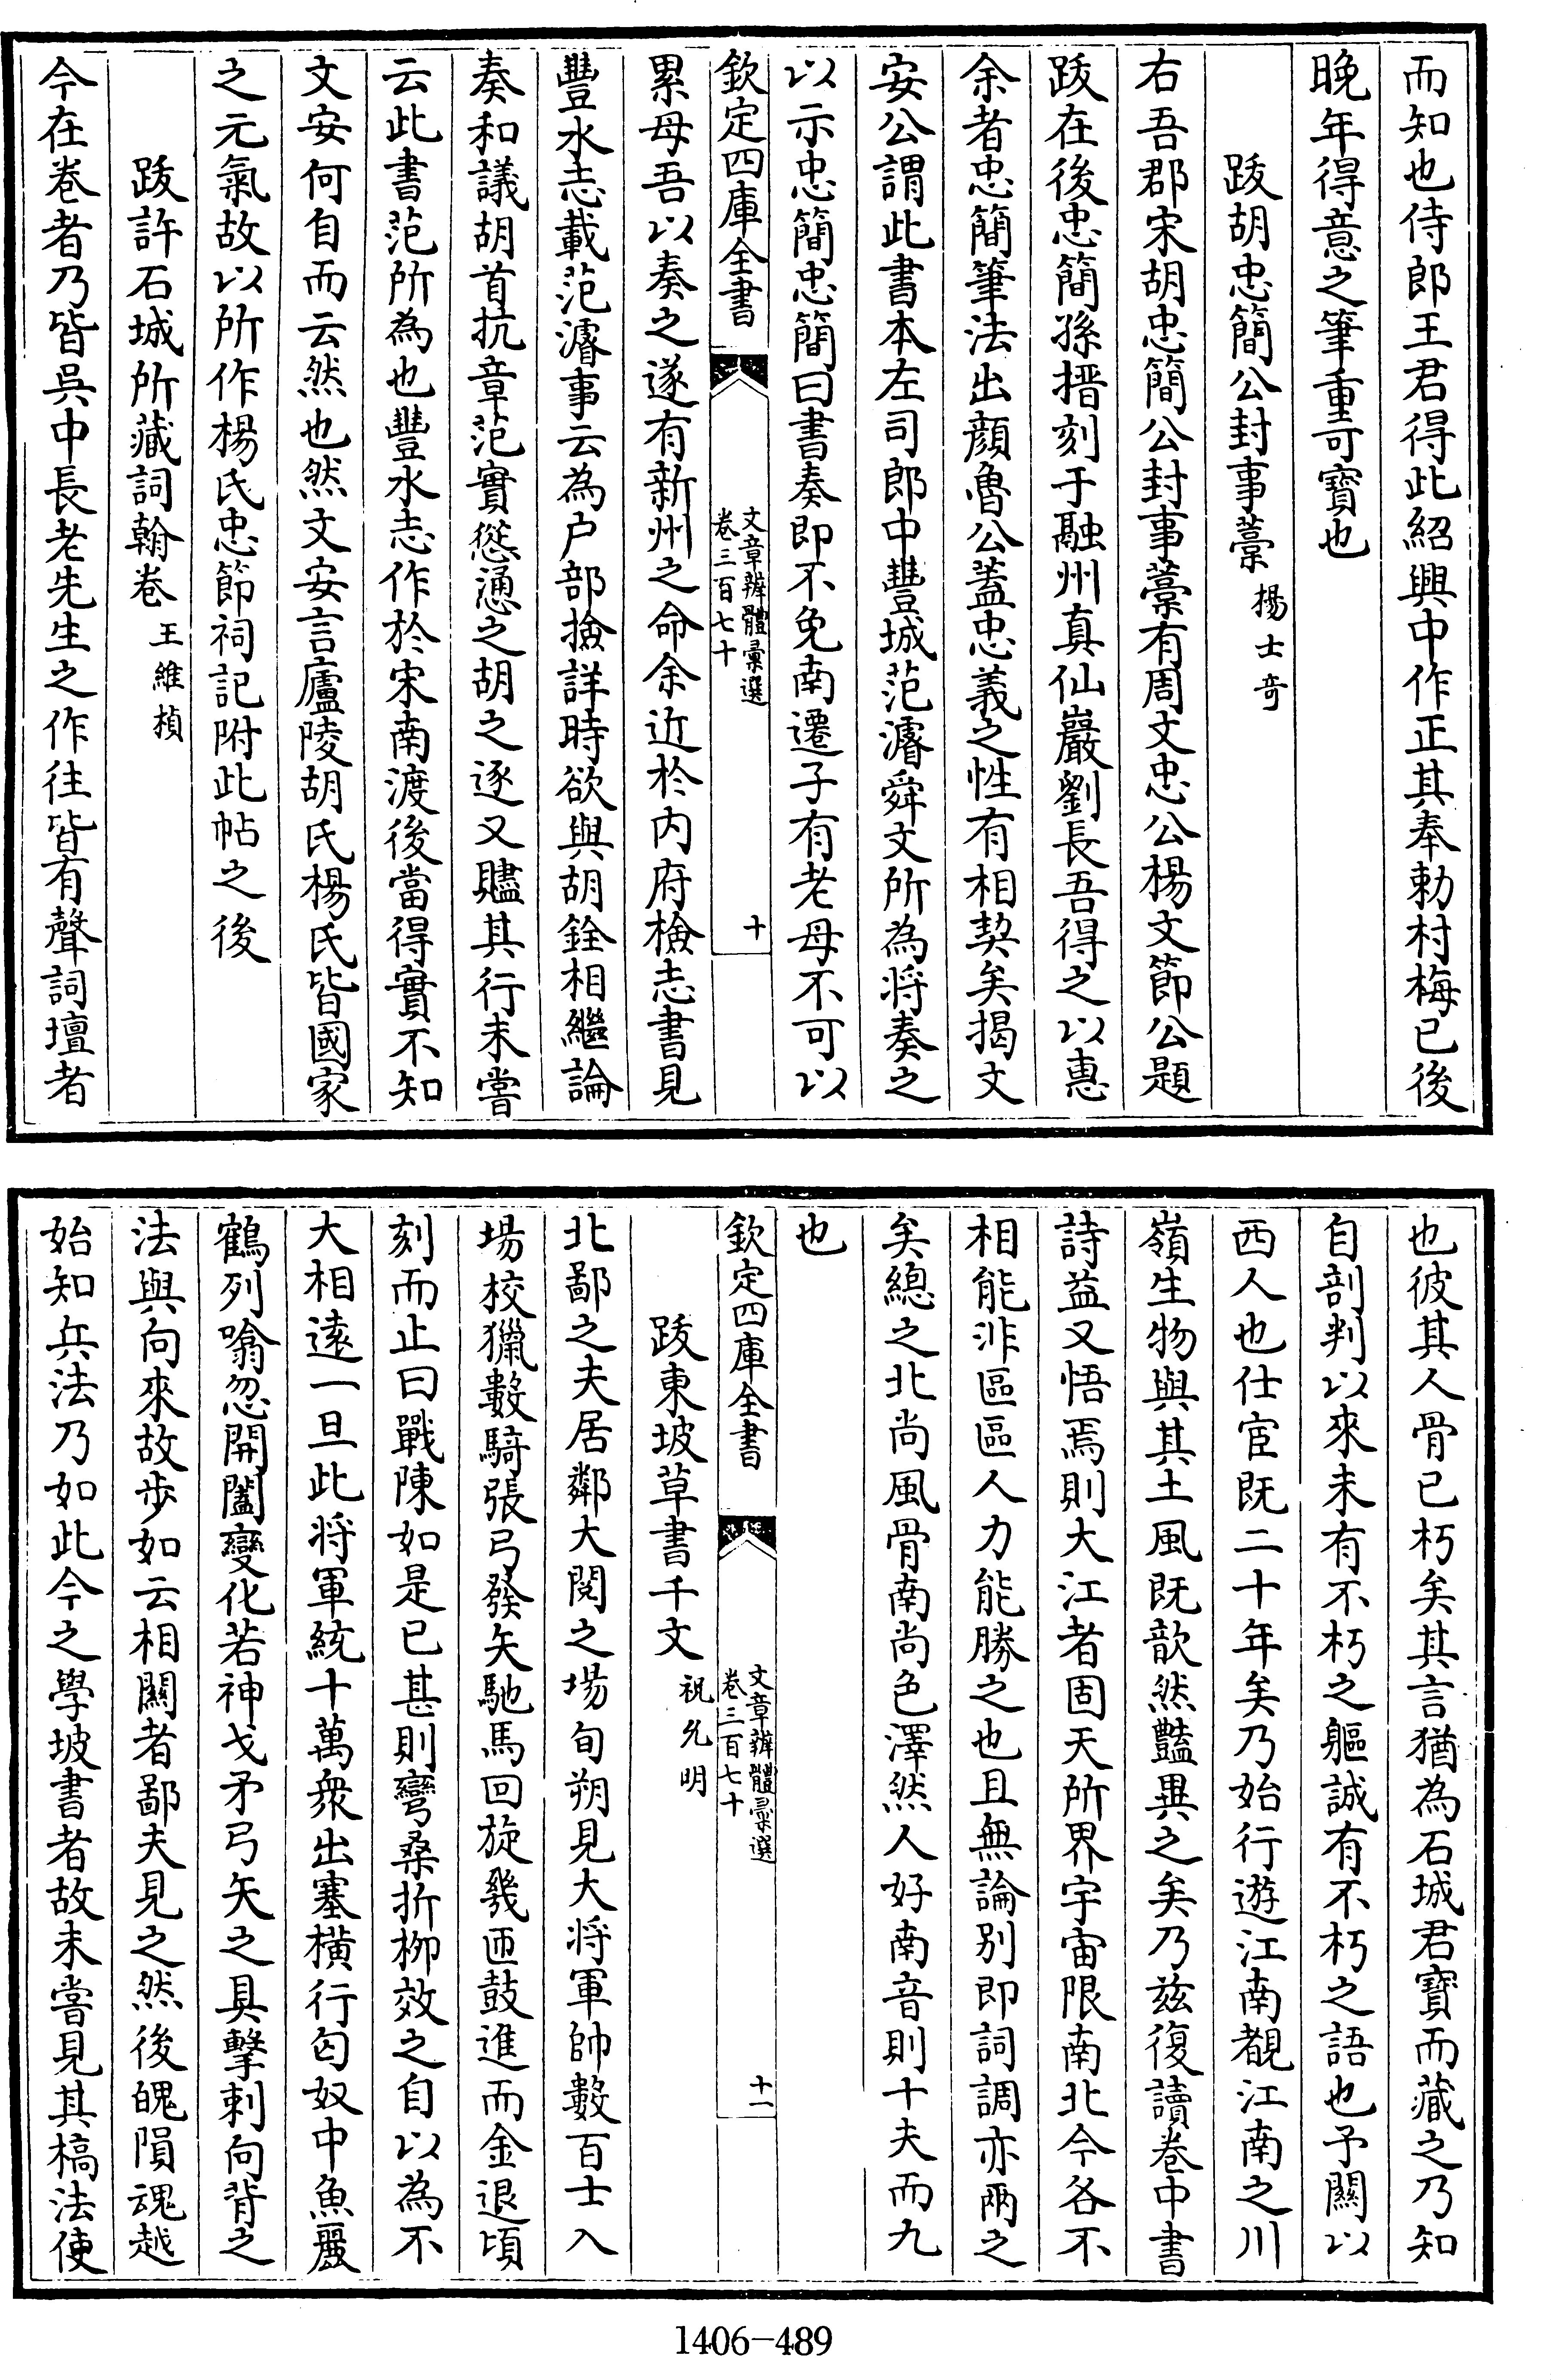 而知也侍郎王君得此紹興中作正其奉勅村梅已後
晚年得意之筆重可寶也
跋胡忠簡公封事藁 楊士奇
右吾郡宋胡忠簡公封事藁有周文忠公楊文節公題
跋在後忠簡孫搢刻于融州真仙巖劉長吾得之以惠
余者忠簡筆法出顔魯公蓋忠義之性有相契矣揭文
安公謂此書本左司郎中豐城范濬舜文所為将奏之
以示忠簡忠簡曰書奏即不免南遷子有老母不可以
欽定四庫全書 文章辨體彙選 卷三百七十 十
累母吾以奏之遂有新州之命余近於内府檢志書見
豐水志載范濬事云為户部撿詳時欲與胡銓相繼論
奏和議胡首抗章范實慫慂之胡之逐又贐其行未嘗
云此書范所為也豐水志作於宋南渡後當得實不知
文安何自而云然也然文安言廬陵胡氏楊氏皆國家
之元氣故以所作楊氏忠節祠記附此帖之後
跋許石城所藏詞翰卷 王維楨
今在卷者乃皆吳中長老先生之作往皆有聲詞壇者
也彼其人骨已朽矣其言猶為石城君寶而藏之乃知
自剖判以來未有不朽之軀誠有不朽之語也予關以
西人也仕宦既二十年矣乃始行遊江南覩江南之川
嶺生物與其土風既歆然豔異之矣乃兹復讀卷中書
詩益又悟焉則大江者固天所界宇宙限南北令各不
相能非區區人力能勝之也且無論别即詞調亦兩之
矣總之北尚風骨南尚色澤然人好南音則十夫而九
也
欽定四庫全書 文章辨體彙選 卷三百七十 十一
跋東坡草書千文 祝允明
北鄙之夫居鄰大閱之場旬朔見大将軍帥數百士入
場校獵數騎張弓發矢馳馬回旋幾匝鼓進而金退頃
刻而止曰戰陳如是已甚則彎桑折柳效之自以為不
大相遠一旦此将軍統十萬衆出塞横行匈奴中魚麗
鶴列噏忽開闔變化若神戈矛弓矢之具擊刺向背之
法與向來故步如云相關者鄙夫見之然後魄隕魂越
始知兵法乃如此今之學坡書者故未嘗見其槁法使
1406-489